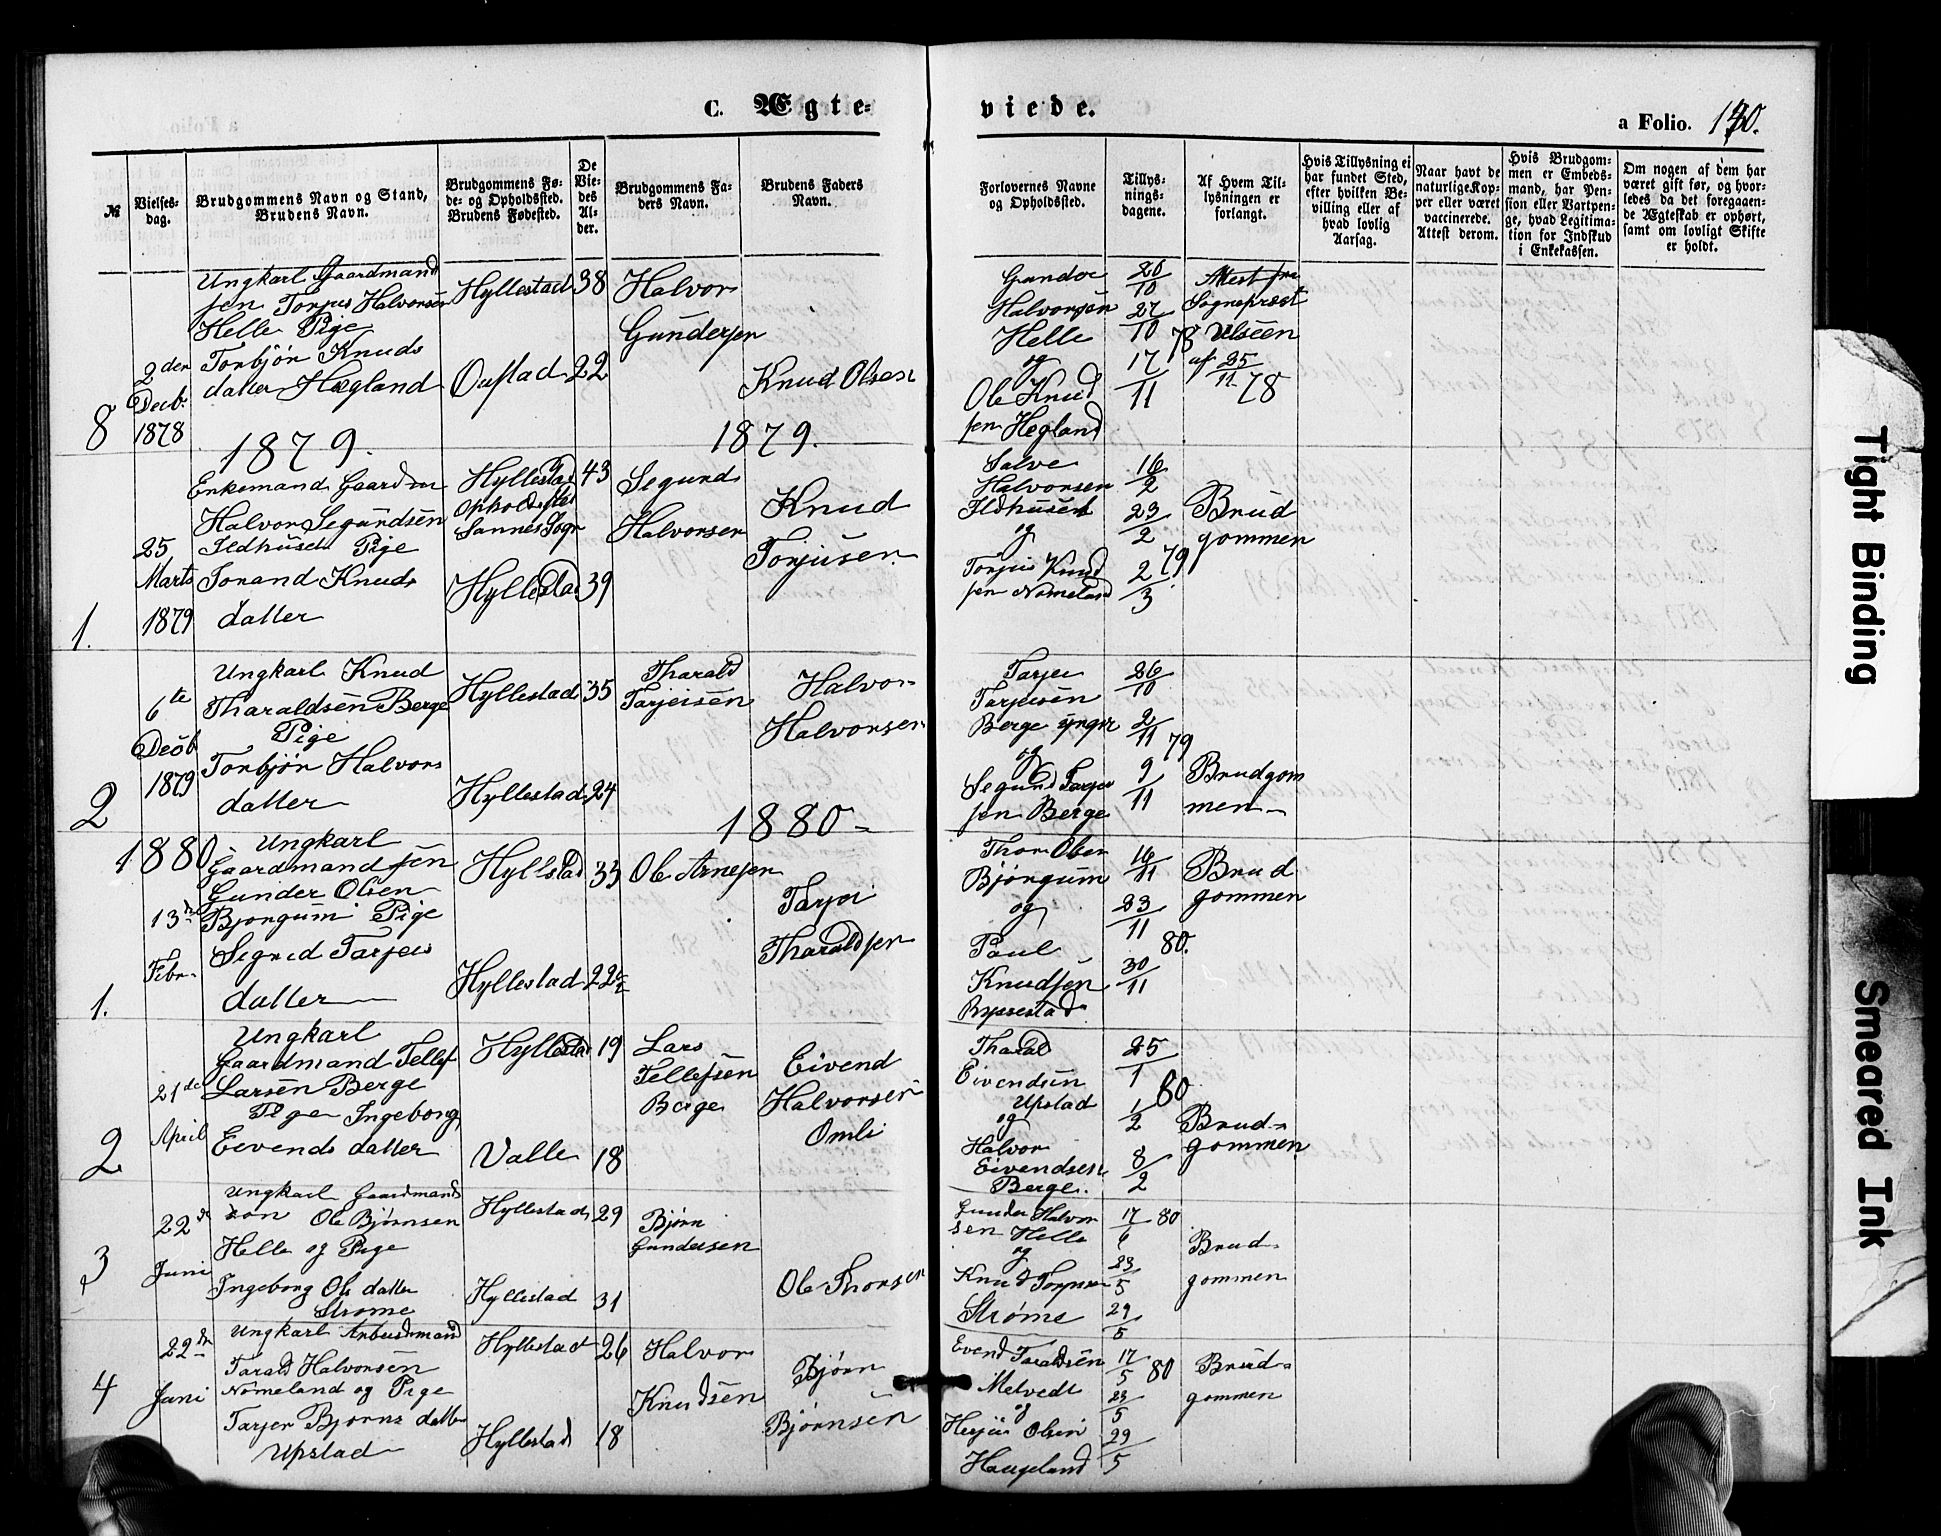 C. Ægte-
viede.
a Folio. 140.
№
Vielses-
dag.
Brudgommens Navn og Stand,
Brudens Navn.
Brudgommens Fø-
de- og Opholdssted.
Brudens Fødested.
De
Vie-
des
Al-
der.
Brudgommens Fa-
ders Navn.
Brudens Faders
Navn.
Forlovernes Navne
og Opholdssted.
Tillys-
nings-
dagene.
Af Hvem Til-
lysningen er
forlangt.
Hvis Tillysning ei
har fundet Sted,
efter hvilken Be-
villing eller af
hvad lovlig
Aarsag.
Naar havt de
naturlige Kop-
per eller været
vaccinerede.
Attest derom.
Hvis Brudgom-
men er Embeds-
mand, har Pen-
sion eller Vartpen-
ge, hvad Legitima-
tion for Indskud
i Enkekassen.
Om nogen af dem har
været gift før, og hvor-
ledes da det foregaaen-
de Ægteskab er ophørt,
samt om lovligt Skifte
er holdt.
8
2den
Decb.
1878
Ungkarl Gaardmand
sen Torjus Halvorsen
Helle Pige
Torbjør Knuds
datter Hægland
Hyllestad
38
22
Halvor
Gundersen
Knud Olsen
Halvorsen
Helle
og
Ole Knud
sen Hegland
20/10
27/10 78
17/11
Attest fra
Sognepræst
Ulseen
af 25/11 78
1879.
1879.
1.
25
Marts
1879
Enkemand Gaardm
Halvor Segundsen
Ildhusen Pige
Jorand Knuds
datter
Hyllestad
Opholdssted
Sannes Sogn
Hyllestad
43
39
Segund
Halvorsen
Knud
Torjusen.
Salve
Halvorsen
Ildhusen
og
Torjus Knud
sen Nomeland
16/2
23/2
79
2/3
Brud
gommen
2
6te
Decb
1879
Ungkarl Knud
Tharaldsen Berge
Pige
Torbjør Halvors
datter
Hyllestad
Hyllestad
35
24
Tharald
Tarjeisen
Halvor
Halvorsen
Tarjei
Tarjeisen
Berge yngr
og
Segund Tarjei
sen Berge
26/10
2/11 79
9/11
Brudgom
men
1880
1880
1.
13de
Febr.
Ungkarl
Gaardmandsen
Gunder Olsen
Bjorgum Pige
Segrid Tarjeis
datter
Hyllestad
Hyllestad
33
Ole Arnesen
Tarjei
Tharaldsen
Thor Olsen
Bjørgum
og
Paul
Knudsen
Ryssestad
16/11
23/11
80.
30/11
Brud
gommen
2
21de
April
Ungkarl
Gaardmand Tellef
Larsen Berge
Pige Ingeborg
Eivends datter
Hyllestad
Valle
19
18
Lars
Tellefsen
Berge
Eivend
Halvorsen
Omli
Tharald
Eivendsen
Upstad
og
Halvor
Eivendsen
Berge.
25/1
80
1/2
8/2
Brud-
gommen
3
22de
Juni
Ungkarl Gaardmands
søn Ole Bjørnsen
Helle og Pige
Ingeborg Ols datter
Strøme
Hyllestad
Hyllestad
29
31
Bjørn
Gundersen
Ole Thorsen
Gunder Halvor
sen Helle
og
Strøme
80
23/5
29/5
Brud-
gommen
4
22de
Juni
Ungkarl Arbeidsmand
Tarald Halvorsen
Nomeland og Pige
Tarjer Bjorns datter
Upstad
Hyllestad
Hyllestad
26
18
Halvor
Knudsen
Bjørn
Bjørnsen
Evend Taraldsen
Melvedt
og
Olsen
Haugeland
17/5 80
23/5
29/5
Brud-
gommen
Tight Binding
Smeared Ink